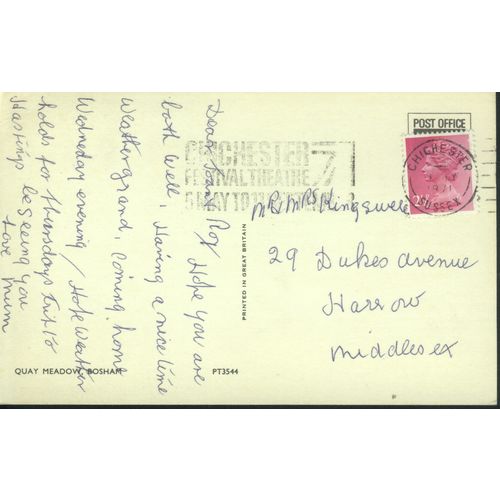 Dear Joan, Roy Hope you are
both well, Having a nice time
Weather grand, coming home
Wednesday evening / Hope Weather
holds for thursdays trip to
Hastings be seeing you
Love Mum
POST OFFICE
CHICHESTER
1971
SUSSEX
CHICHESTER
FESTIVAL THEATRE
5 MAY TO 11
Mr & Mrs Kingswell
29 Dukes Avenue
Harrow
Middlesex
PRINTED IN GREAT BRITAIN
QUAY MEADOW, BOSHAM
PT3544